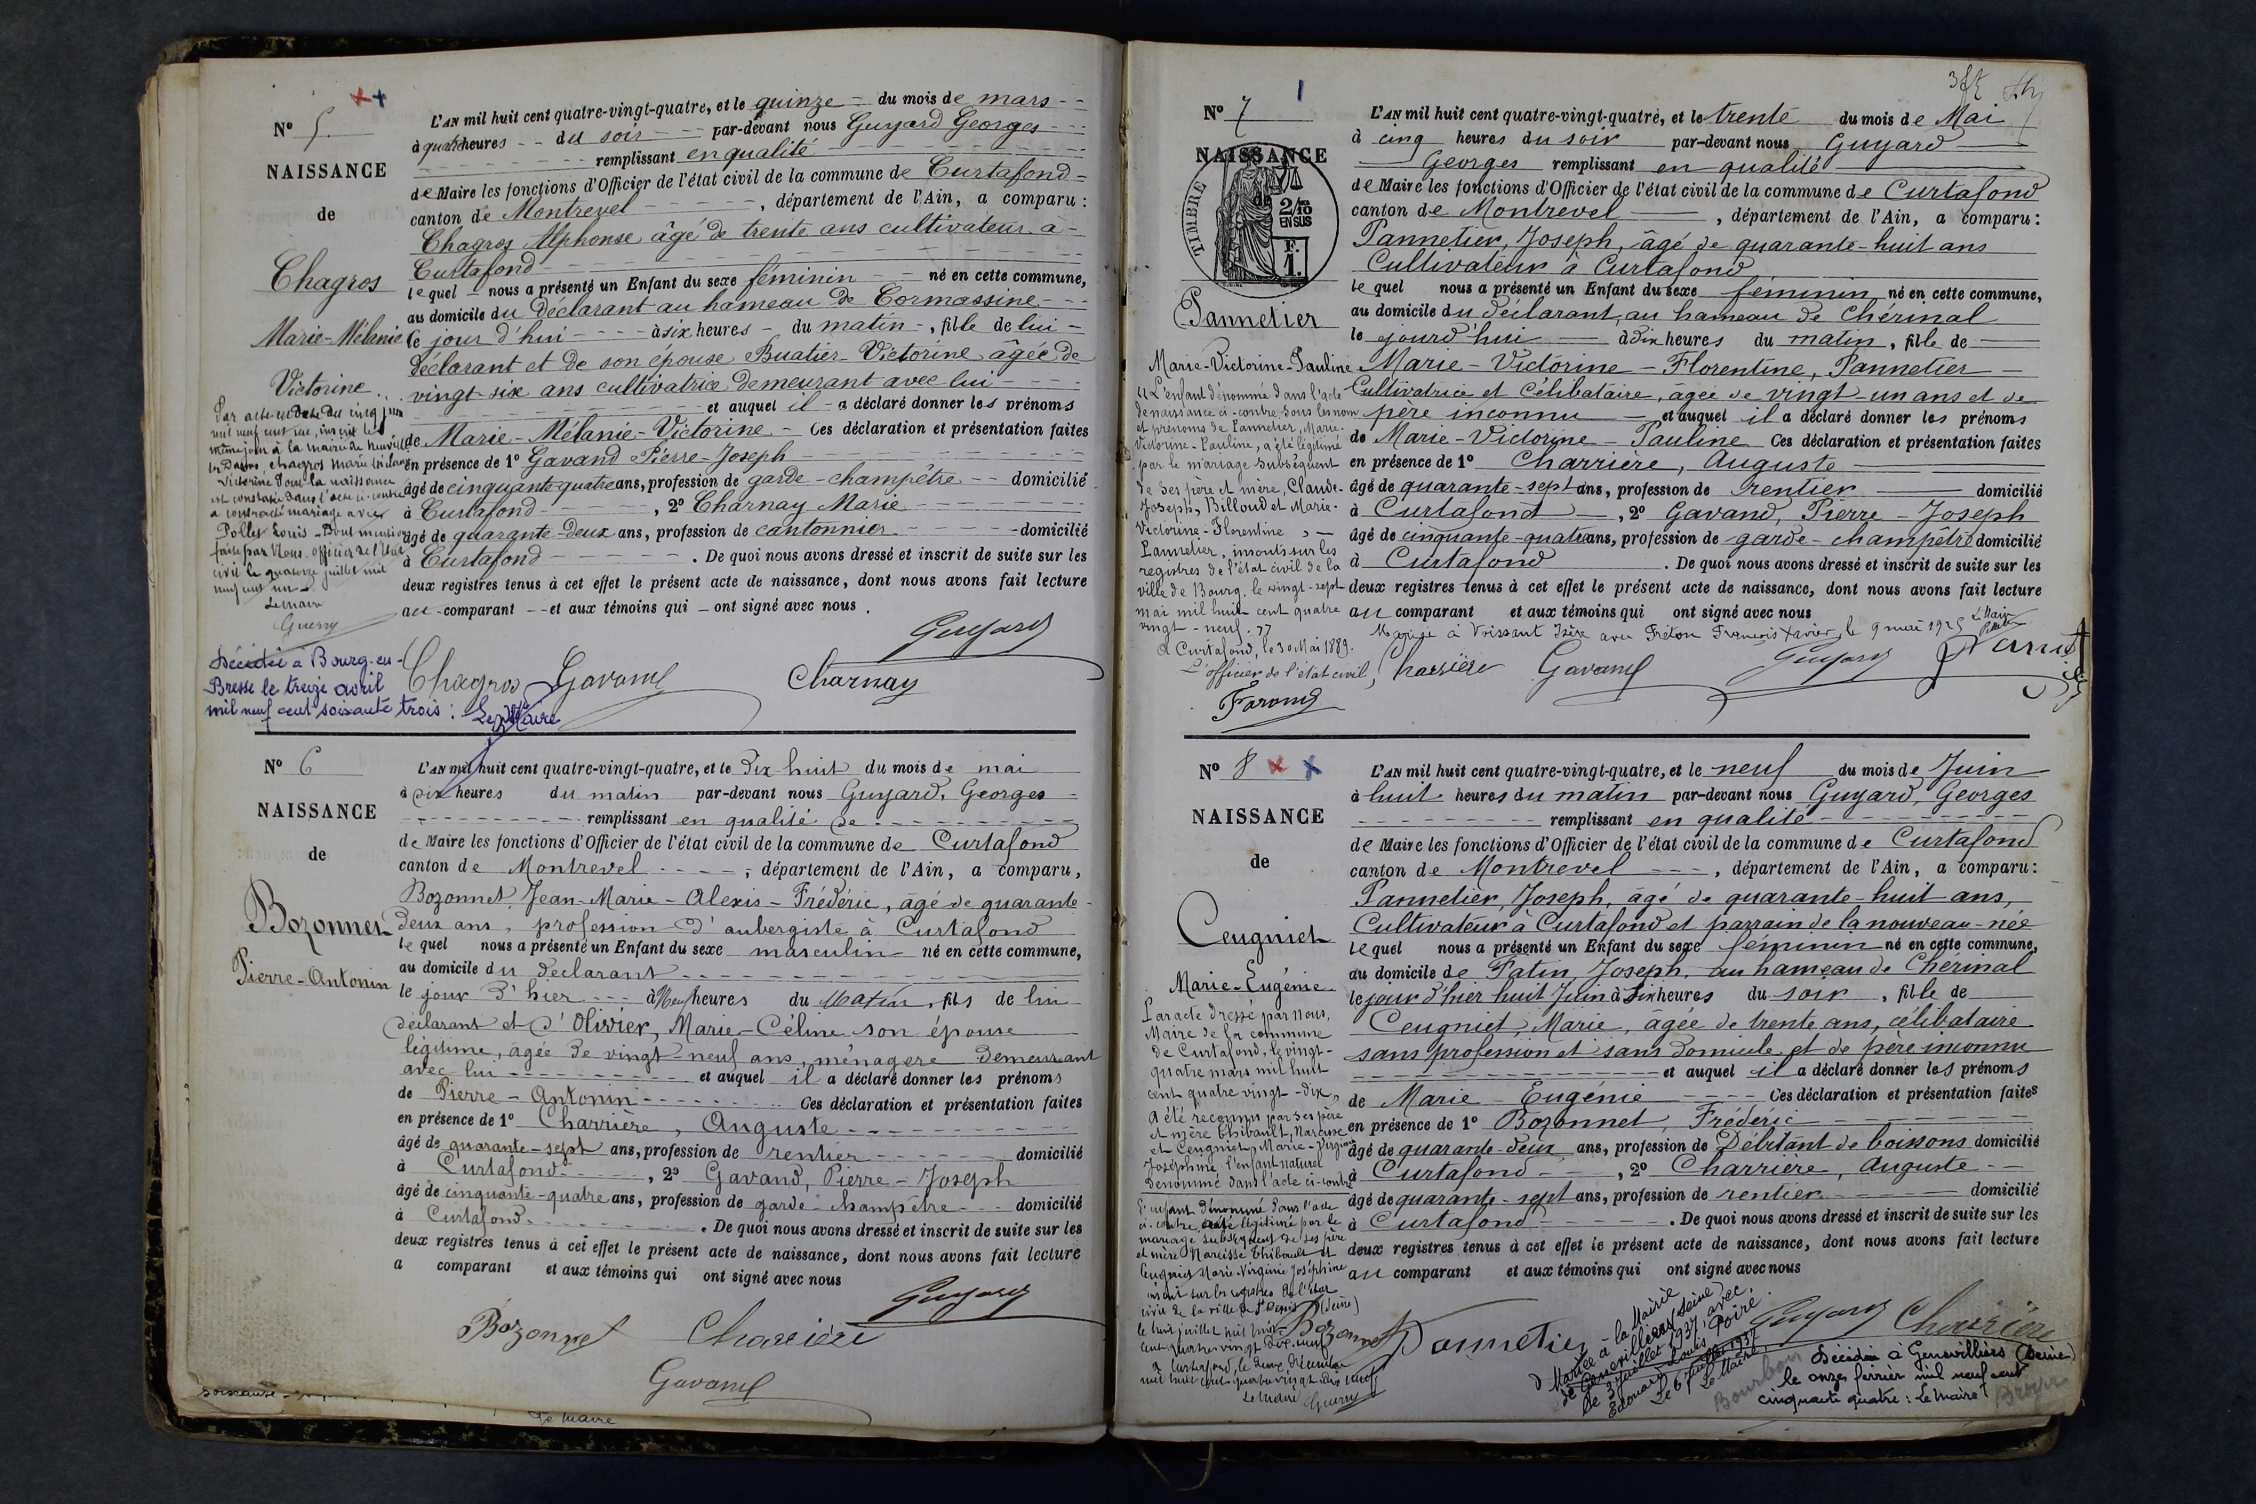 N° 5.
NAISSANCE
de
Chagros
Marie-Mélanie
Victorine
Par acte en date du cinq juin
mil neuf cent un, inscrit le
même jour à la mairie de Neuville
les Dames, Chagros Marie Mélanie
Victorine dont la naissance
est constatée dans l'acte ci-contre
a contracté mariage avec
Pollet Louis - Dont mention
faite par Nous officier de l'état
civil le quatorze juillet mil
neuf cent un
Le Maire
Guerry
Décédée à Bourg-en-
Bresse le treize avril
mil neuf cent soixante trois : Le Maire
L'AN mil huit cent quatre-vingt-quatre, et le quinze du mois de mars
à quatre heures du soir par-devant nous Guyard Georges
remplissant en qualité
de Maire les fonctions d'Officier de l'état civil de la commune de Curtafond
canton de Montrevel, département de l'Ain, a comparu :
Chagros Alphonse âgé de trente ans cultivateur à
Curtafond
lequel nous a présenté un Enfant du sexe féminin né en cette commune,
au domicile du déclarant au hameau de Cormassine
le jour d'hui à six heures du matin, fille de lui
déclarant et de son épouse Buatier Victorine âgée de
vingt-six ans cultivatrice demeurant avec lui
et auquel il a déclaré donner les prénoms
de Marie-Mélanie-Victorine Ces déclaration et présentation faites
en présence de 1° Gavand Pierre-Joseph
âgé de cinquante quatre ans, profession de garde-champêtre domicilié
à Curtafond, 2° Charnay Marie
âgé de quarante-deux ans, profession de cantonnier domicilié
à Curtafond. De quoi nous avons dressé et inscrit de suite sur les
deux registres tenus à cet effet le présent acte de naissance, dont nous avons fait lecture
au comparant et aux témoins qui ont signé avec nous.
Guyard
Chagros Gavand Charnay
N° 6
NAISSANCE
de
Bozonnet
Pierre-Antonin
L'AN mil huit cent quatre-vingt-quatre, et le dix huit du mois de mai
à dix heures du matin par-devant nous Guyard, Georges
remplissant en qualité de
de Maire les fonctions d'Officier de l'état civil de la commune de Curtafond
canton de Montrevel, département de l'Ain, a comparu,
Bozonnet Jean-Marie-Alexis-Frédéric, âgé de quarante-
deux ans, profession d'aubergiste à Curtafond
lequel nous a présenté un Enfant du sexe masculin né en cette commune,
au domicile du déclarant
le jour d'hier à Neuf heures du Matin, fils de lui
déclarant et d'Olivier, Marie-Céline son épouse
légitime, âgée de vingt-neuf ans, ménagère demeurant
avec lui et auquel il a déclaré donner les prénoms
de Pierre-Antonin Ces déclaration et présentation faites
en présence de 1° Charrière, Auguste
âgé de quarante-sept ans, profession de rentier domicilié
à Curtafond, 2° Gavand, Pierre-Joseph
âgé de cinquante-quatre ans, profession de garde-champêtre domicilié
à Curtafond. De quoi nous avons dressé et inscrit de suite sur les
deux registres tenus à cet effet le présent acte de naissance, dont nous avons fait lecture
a comparant et aux témoins qui ont signé avec nous
Guyard
Bozonnet Charrière
Gavand
Le Maire
N° 7
NAISSANCE
de
TIMBRE
2/10
EN SUS
F.
1.
Pannetier
Marie-Victorine-Pauline
"L'enfant dénommé dans l'acte
de naissance ci-contre sous les nom
et prénoms de Pannetier, Marie-
Victorine-Pauline, a été légitimé
par le mariage subséquent
de ses père et mère, Claude-
Joseph, Billoud et Marie-
Victorine-Florentine
Pannetier, inscrit sur les
registres de l'état civil de la
ville de Bourg, le vingt-sept
mai mil huit cent quatre
vingt-neuf."
A Curtafond, le 30 Mai 1889.
L'officier de l'état civil,
Farond
L'AN mil huit cent quatre-vingt-quatre, et le trente du mois de Mai
à cinq heures du soir par-devant nous Guyard
Georges remplissant en qualité
de Maire les fonctions d'Officier de l'état civil de la commune de Curtafond
canton de Montrevel, département de l'Ain, a comparu :
Pannetier, Joseph, âgé de quarante-huit ans
Cultivateur à Curtafond
lequel nous a présenté un Enfant du sexe féminin né en cette commune,
au domicile du déclarant, au hameau de Chérinal
le jourd'hui à dix heures du matin, fille de
Marie-Victorine-Florentine, Pannetier
Cultivatrice et Célibataire, âgée de vingt-un ans et de
père inconnu et auquel il a déclaré donner les prénoms
de Marie-Victorine-Pauline Ces déclaration et présentation faites
en présence de 1° Charrière, Auguste
âgé de quarante-sept ans, profession de rentier domicilié
à Curtafond, 2° Gavand, Pierre-Joseph
âgé de cinquante-quatre ans, profession de garde-champêtre domicilié
à Curtafond. De quoi nous avons dressé et inscrit de suite sur les
deux registres tenus à cet effet le présent acte de naissance, dont nous avons fait lecture
au comparant et aux témoins qui ont signé avec nous
Mariée à Voissant Isère avec Fréton François Xavier, le 9 mai 1925 Le Maire
Charrière Gavand Guyard
N° 8
NAISSANCE
de
Ceugniet
Marie-Eugénie
Par acte dressé par nous,
Maire de la commune
de Curtafond, le vingt-
quatre mars mil huit
cent quatre vingt-dix,
a été reconnu par ses père
et mère Thibault, Narcisse
et Ceugniet, Marie-Virginie
Joséphine l'enfant naturel
dénommé dans l'acte ci-contre
L'enfant dénommé dans l'acte
ci-contre a été légitimé par le
mariage subséquent de ses père
et mère Narcisse Thibault et
Ceugniet Marie-Virginie Joséphine
inscrit sur les registres de l'état
civil de la ville de St Denis (Seine)
le huit juillet mil huit
cent quatre vingt dix neuf
A Curtafond, le deux décembre
mil huit cent quatre vingt dix neuf
Le Maire Guerry
L'AN mil huit cent quatre-vingt-quatre, et le neuf du mois de Juin
à huit heures du matin par-devant nous Guyard, Georges
remplissant en qualité
de Maire les fonctions d'Officier de l'état civil de la commune de Curtafond
canton de Montrevel, département de l'Ain, a comparu :
Pannetier, Joseph, âgé de quarante-huit ans,
Cultivateur à Curtafond et parrain de la nouveau-née
lequel nous a présenté un Enfant du sexe féminin né en cette commune,
au domicile de Patin, Joseph, au hameau de Chérinal
le jour d'hier huit Juin à dix heures du soir, fille de
Ceugniet, Marie, âgée de trente ans, célibataire
sans profession et sans domicile et de père inconnu
et auquel il a déclaré donner les prénoms
de Marie Eugénie Ces déclaration et présentation faites
en présence de 1° Bozonnet, Frédéric
âgé de quarante-deux ans, profession de Débitant de boissons domicilié
à Curtafond, 2° Charrière, Auguste
âgé de quarante-sept ans, profession de rentier domicilié
à Curtafond. De quoi nous avons dressé et inscrit de suite sur les
deux registres tenus à cet effet le présent acte de naissance, dont nous avons fait lecture
au comparant et aux témoins qui ont signé avec nous
Bozonnet Pannetier Guyard Charrière
Mariée à la Mairie
de Genevilliers (Seine)
le 3 juillet 1937, avec
Edouard Louis Poiré.
Le 6 juillet 1937
Le Maire,
Décédée à Genevilliers (Seine)
le onze février mil neuf cent
cinquante quatre : Le Maire